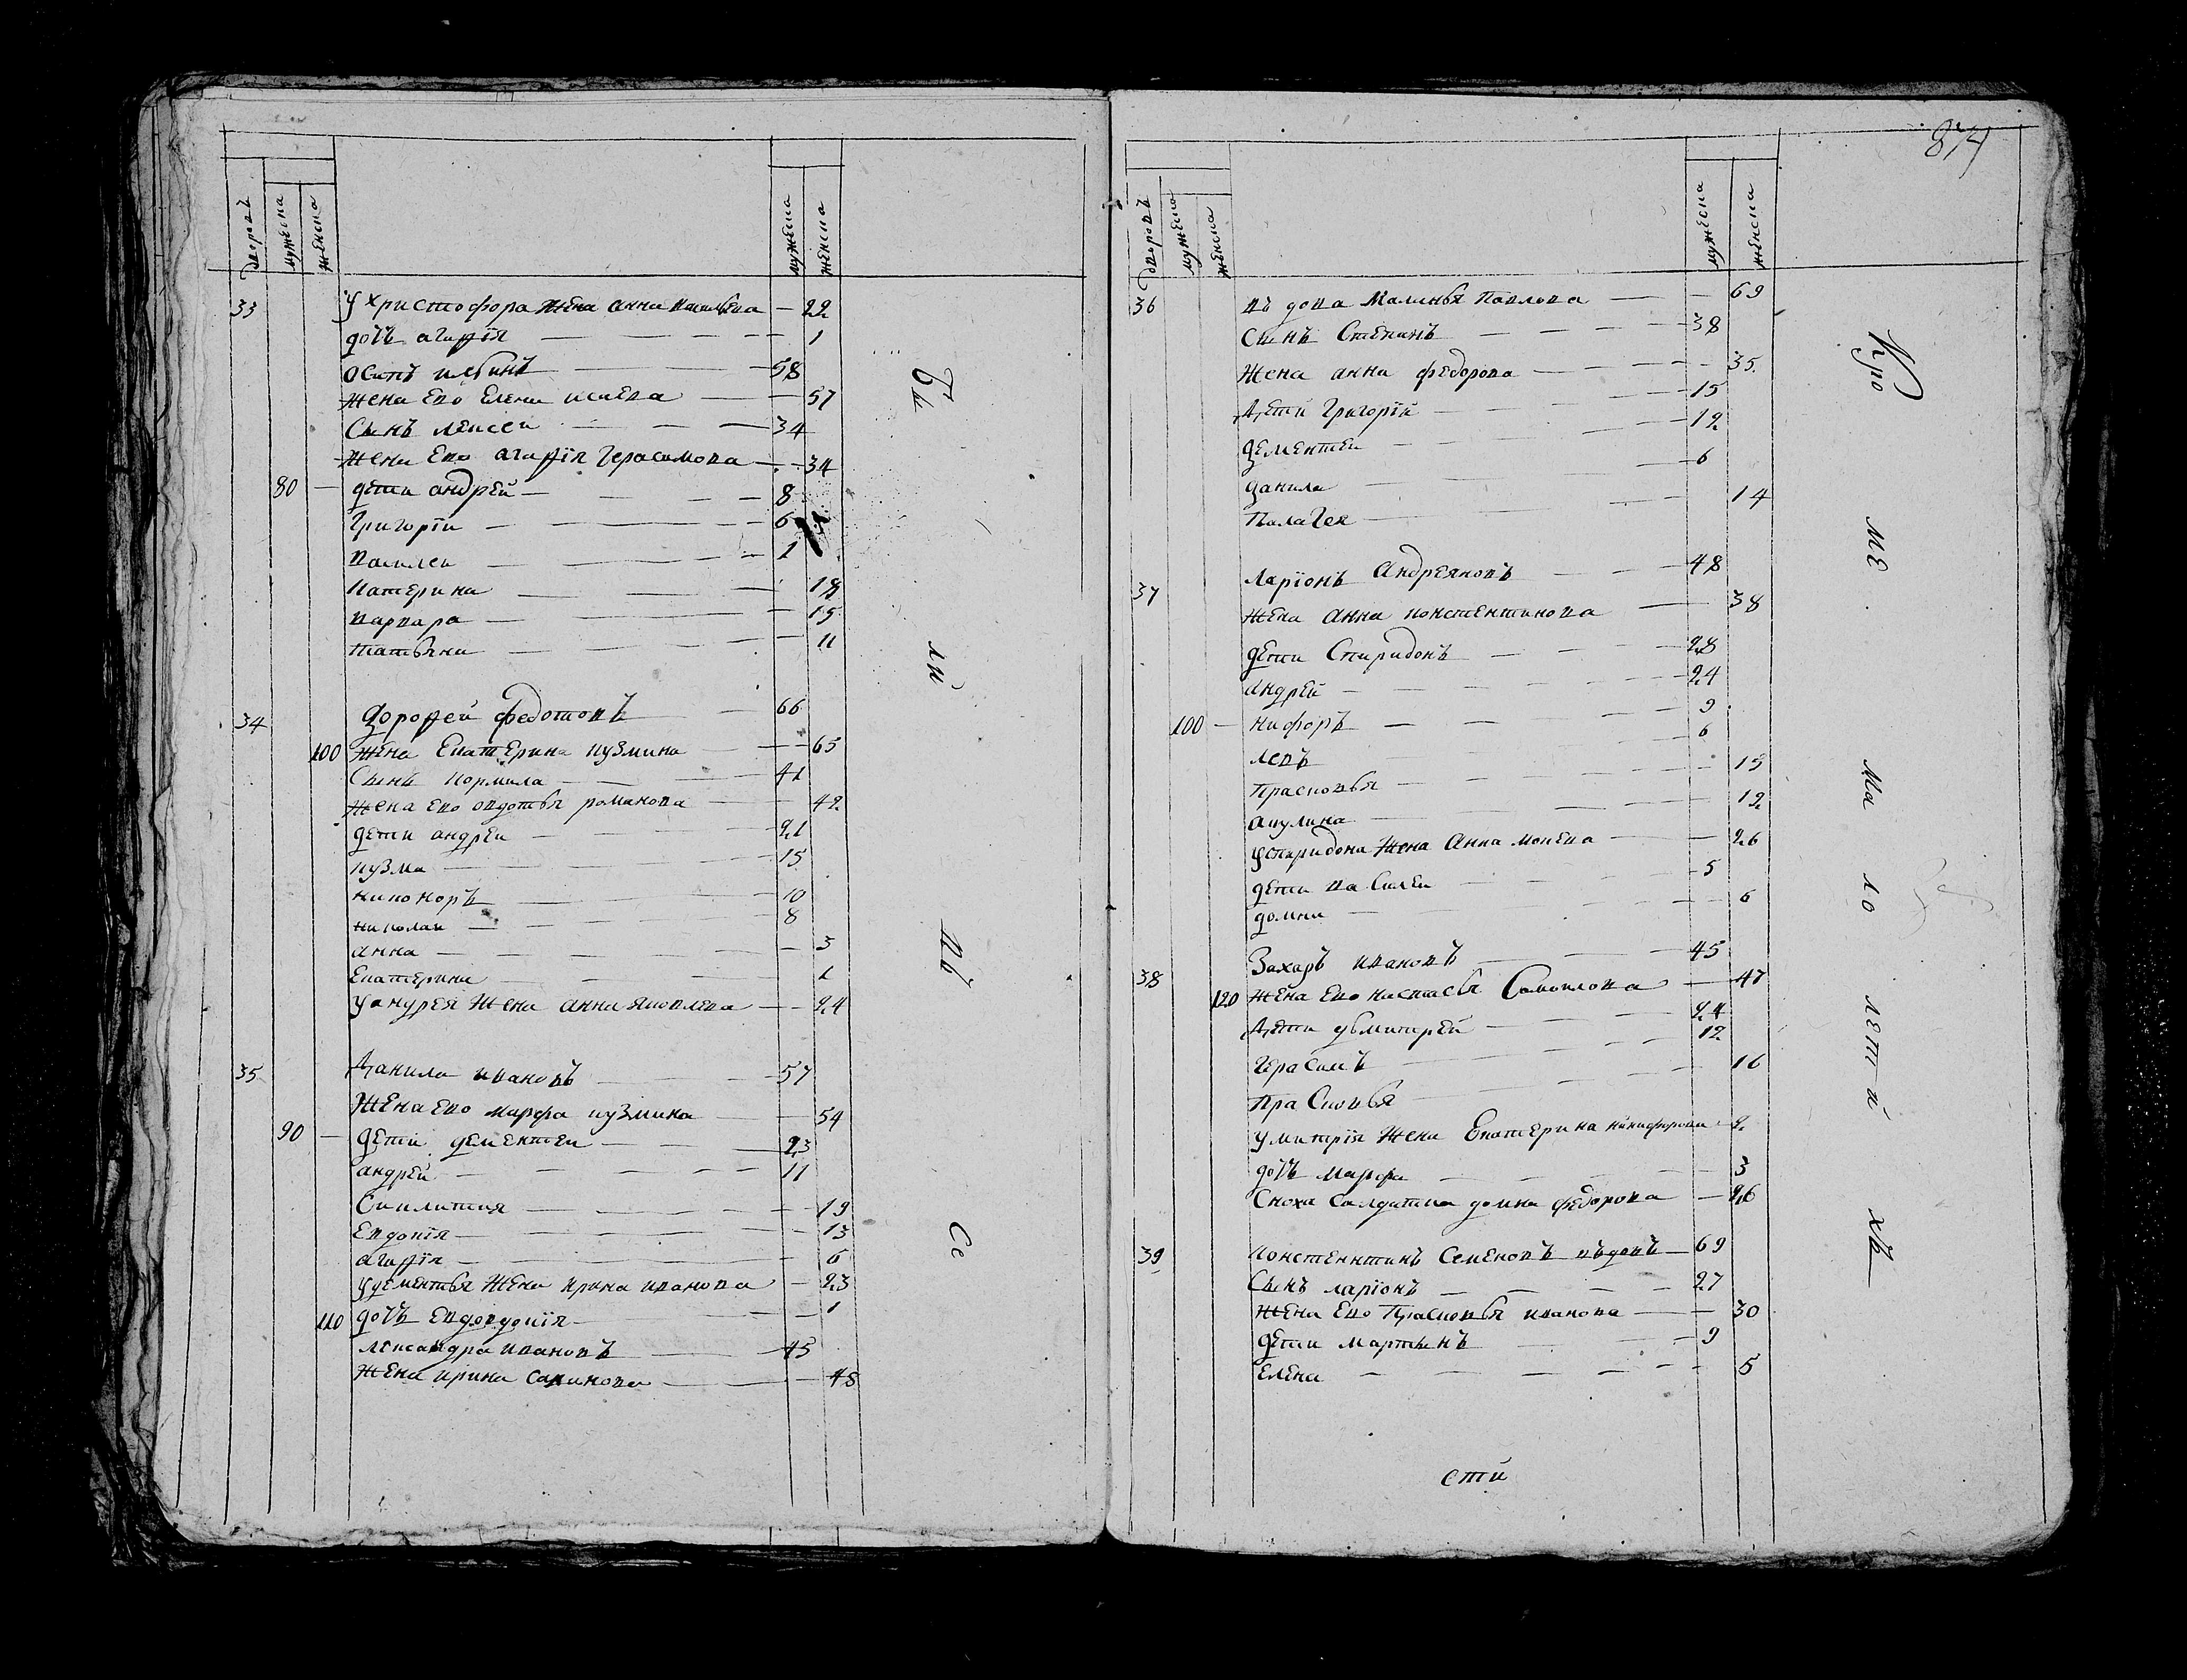 дворовъ мужеска женска мужеска женска
33 у христофора жена анна васильева 22
дочь агафiя 1
осипъ ильинъ 58
жена ево елена исаева 57
сынъ лексеи 34
жена ево агафiя герасимова 34
80 дети андрей 8
григорiи 6
василеи 1
катерина 18
варвара 15
татьяна 11
34 дорофей федотовъ 66
100 жена екатерина кузмина 65
сынъ кормила 41
жена ево овдотья романова 42
дети андреи 21
кузма 15
никоноръ 10
николаи 8
анна 3
екатерина 1
у андрея жена анна яковлева 24
35 данила ивановъ 57
жена ево марфа кузмина 54
90 дети дементеи 23
андрей 11
19
евдокiя 13
агафiя 6
у дементья жена ирина иванова 23
110 дочь 1
лександра ивановъ 45
жена ирина савинова 48
Бы ли въ се
874
дворовъ мужеска женска мужеска женска
36 въдова маланья павлова 69
сынъ степанъ 38
жена анна федорова 35
дети григорiй 15
дементеи 12
данила 6
палагея 14
37 ларiонъ андреяновъ 48
жена анна констентинова 38
дети спиридонъ 28
андрей 24
100 нифоръ 9
левъ 6
прасковья 15
акулина 12
у спиридона жена анна мокева 26
дети василеи 5
домна 6
38 захаръ ивановъ 45
120 жена ево настасья самоилова 47
дети дьмитрей 24
герасимъ 12
прасковья 16
у митрiя жена екатерина никифорова
дочь марфа 3
сноха салдатка домна федорова 26
39 констентинъ семеновъ въдовъ 69
сынъ ларiонъ 27
жена ево прасковья иванова 30
дети мартынъ 9
елена 5
Кро ме ма ло лет ны хъ
сти